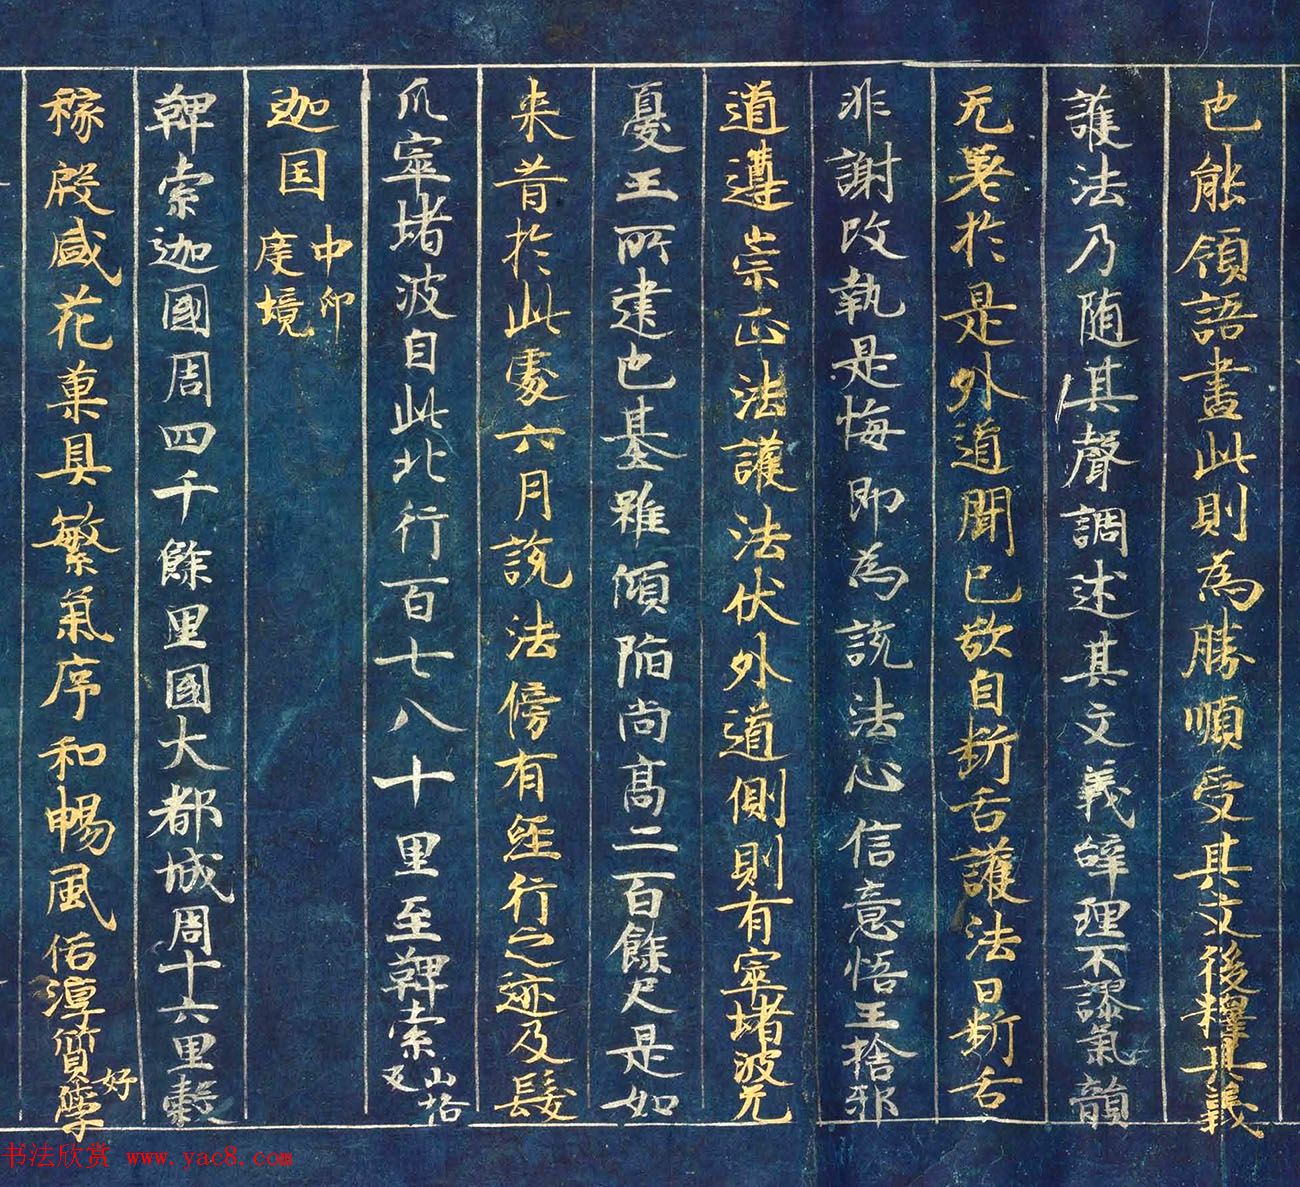 也能領語盡此則為勝順受其文後釋其義
護法乃随其聲調述其文義辞理不謬氣韻
无差於是外道聞已欲自斬舌護法曰斬舌
非謝改執是悔即為説法心信意悟王捨邪
道遵崇正法護法伏外道側則有窣堵波无
憂王所建也基雖傾陷尚高二百餘尺是如
来昔於此處六月說法傍有経行之迹及髮
爪窣堵波自此北行百七八十里至鞞索山格又
迦国中印度境
鞞索迦國周四千餘里國大都城周十六里穀
稼殷盛花菓具繁氣序和暢風俗淳質好學
书法欣赏 www.yac8.com